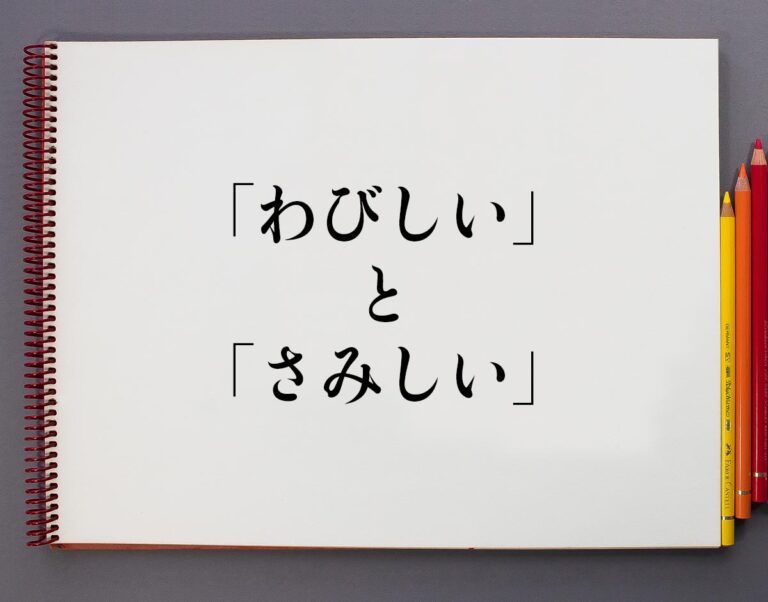 「わびしい」
と
「さみしい」
FABER-CASTELL